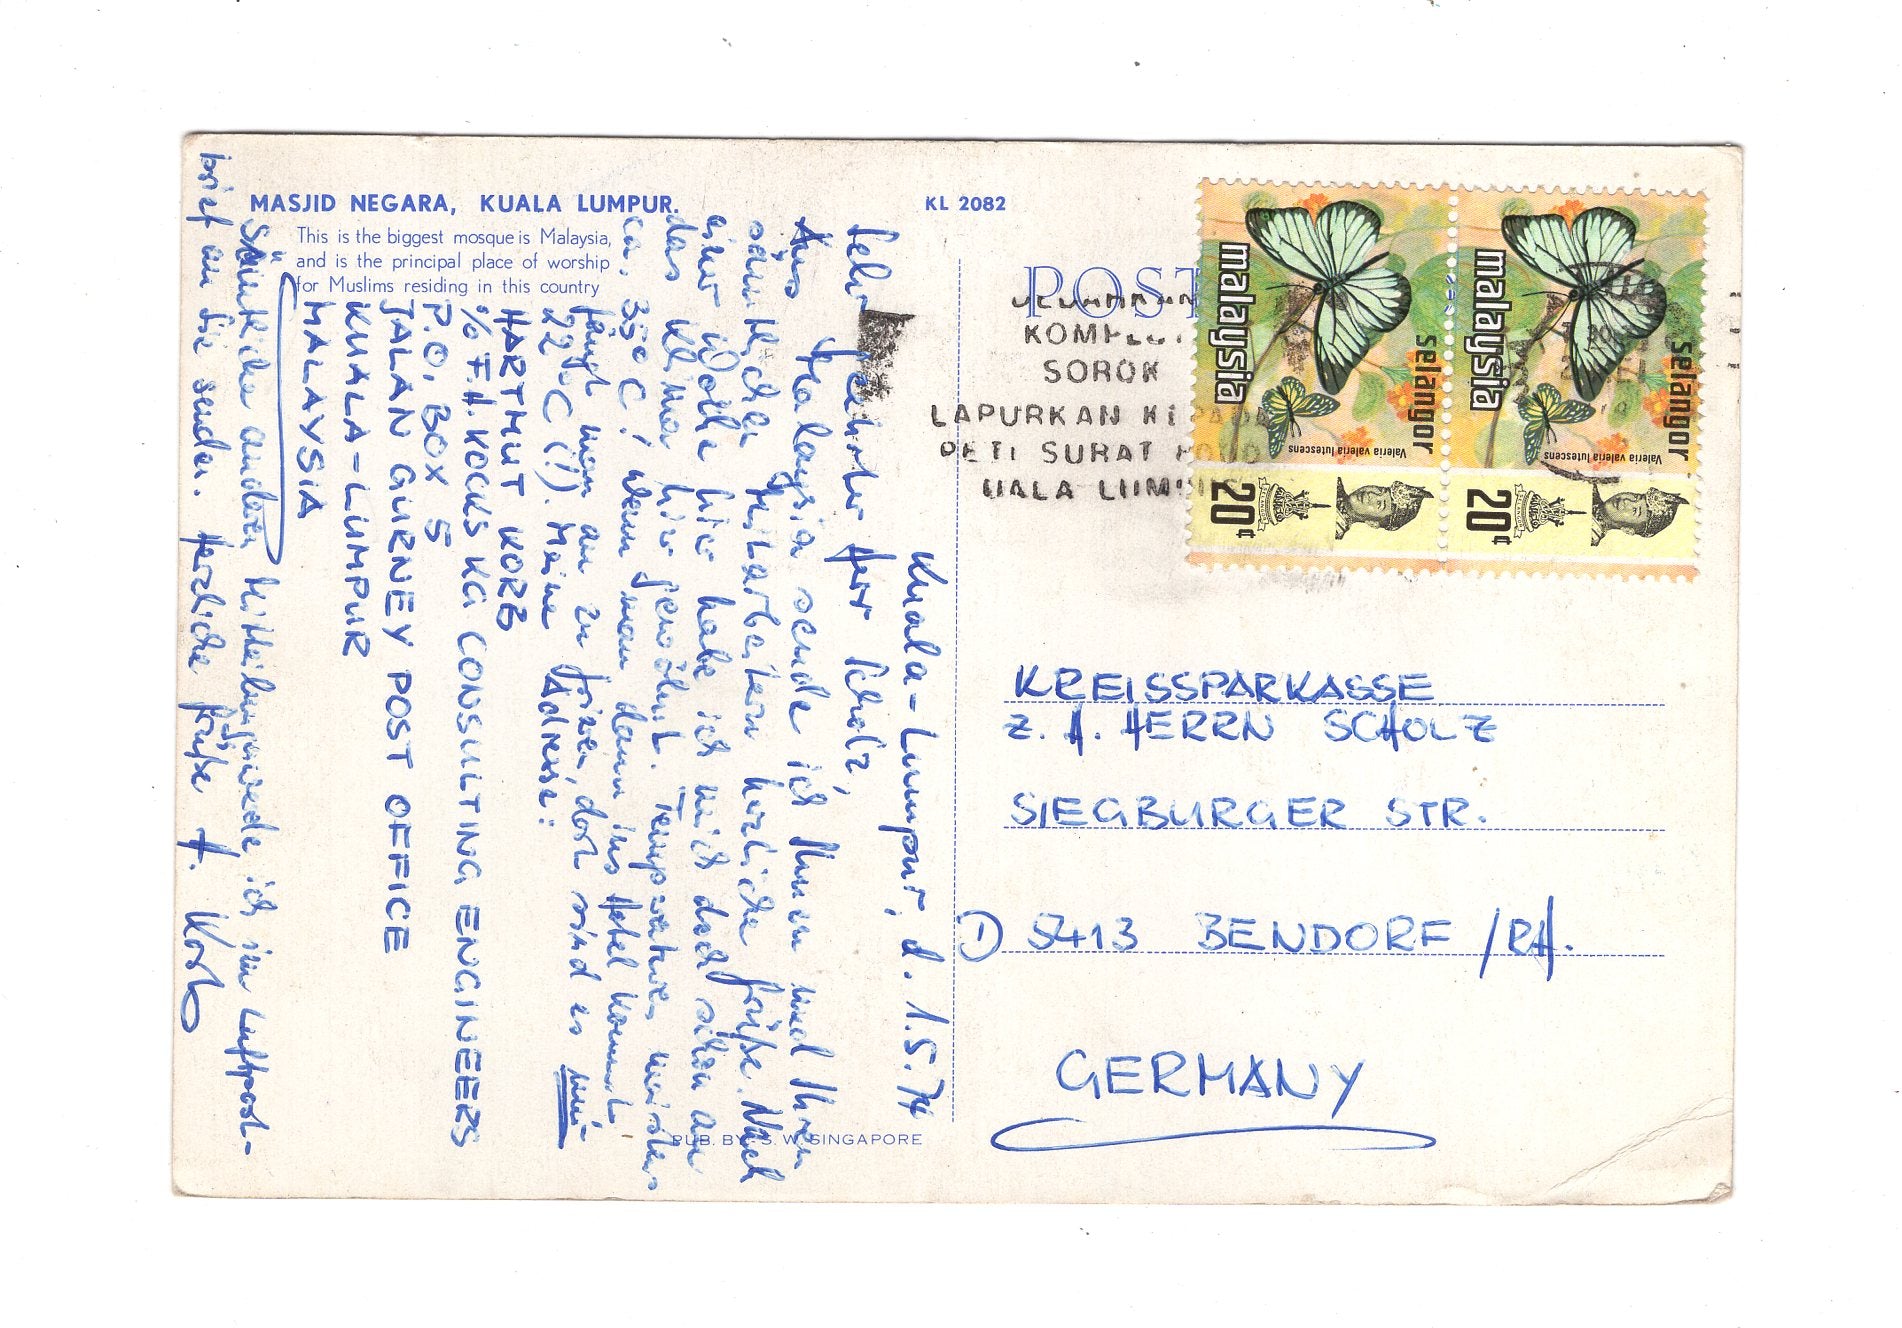 MASJID NEGARA, KUALA LUMPUR.
This is the biggest mosque is Malaysia,
and is the principal place of worship
for Muslims residing in this country
KL 2082
POST
KOMPLOT
SOROK
LAPURKAN KEPADA
PETI SURAT
UALA LUMPUR
malaysia
selangor
Valeria valeria lutescens
20¢
malaysia
selangor
Valeria valeria lutescens
20¢
Kuala-Lumpur, d. 1.5.74
Sehr geehrter Herr Scholz,
Aus Malaysia sende ich Ihnen und Ihren
sämtlichen Mitarbeitern herzliche Grüße. Nach
einer Woche hier habe ich mich doch schon an
das Klima hier gewöhnt. Temperaturen meistens
ca. 35°C! Wenn man dann ins Hotel kommt
fängt man an zu frieren, dort sind es nur
22°C (!). Meine Adresse:
HARTMUT KORB
% F.H. KOCKS KG CONSULTING ENGINEERS
P.O. BOX 5
JALAN GURNEY POST OFFICE
KUALA-LUMPUR
MALAYSIA
Sämtliche anderen Mitteilungen werde ich im Luftpost-
brief an Sie senden. Herzliche Grüße H. Korb
KREISSPARKASSE
Z. H. HERRN SCHOLZ
SIEGBURGER STR.
D 5413 BENDORF /RH.
GERMANY
PUB. BY S. W. SINGAPORE